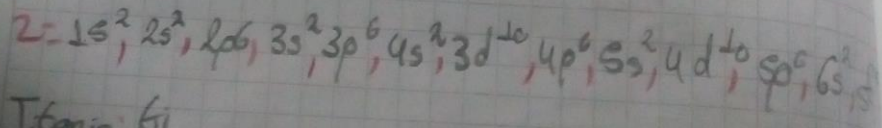 2= 1s², 2s², 2p6, 3s², 3p⁶, 4s², 3d¹⁰, 4p⁶, 5s², 4d¹⁰, 5p⁶, 6s²,